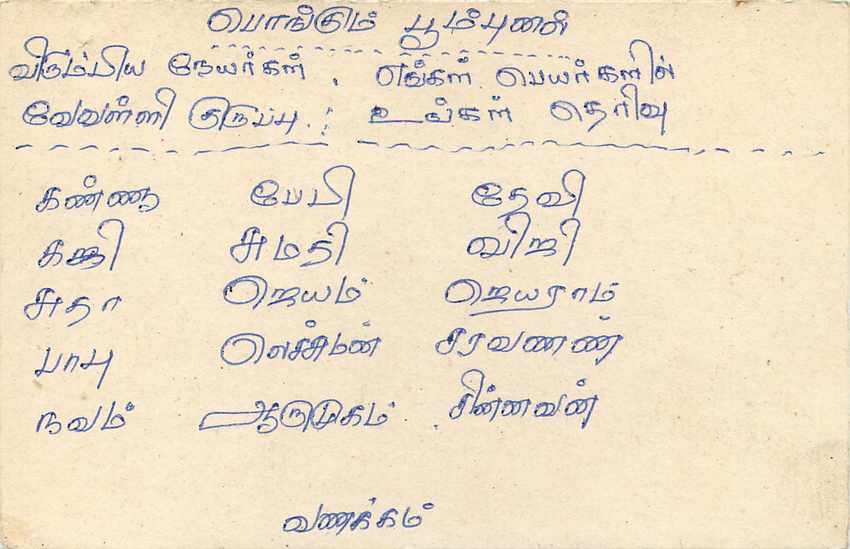 பொங்கும் பூம்புனல்
விரும்பிய நேயர்கள். எங்கள் பெயர்களில்
குருப்பு: உங்கள் தெரிவு
கண்ணா பேபி தேவி
சுமதி விஜி
சுதா ஜெயம் ஜெயராம்
பாபு லெச்சுமன் சரவணண்
நவம் ஆருமுகம் சின்னவன்
வணக்கம்